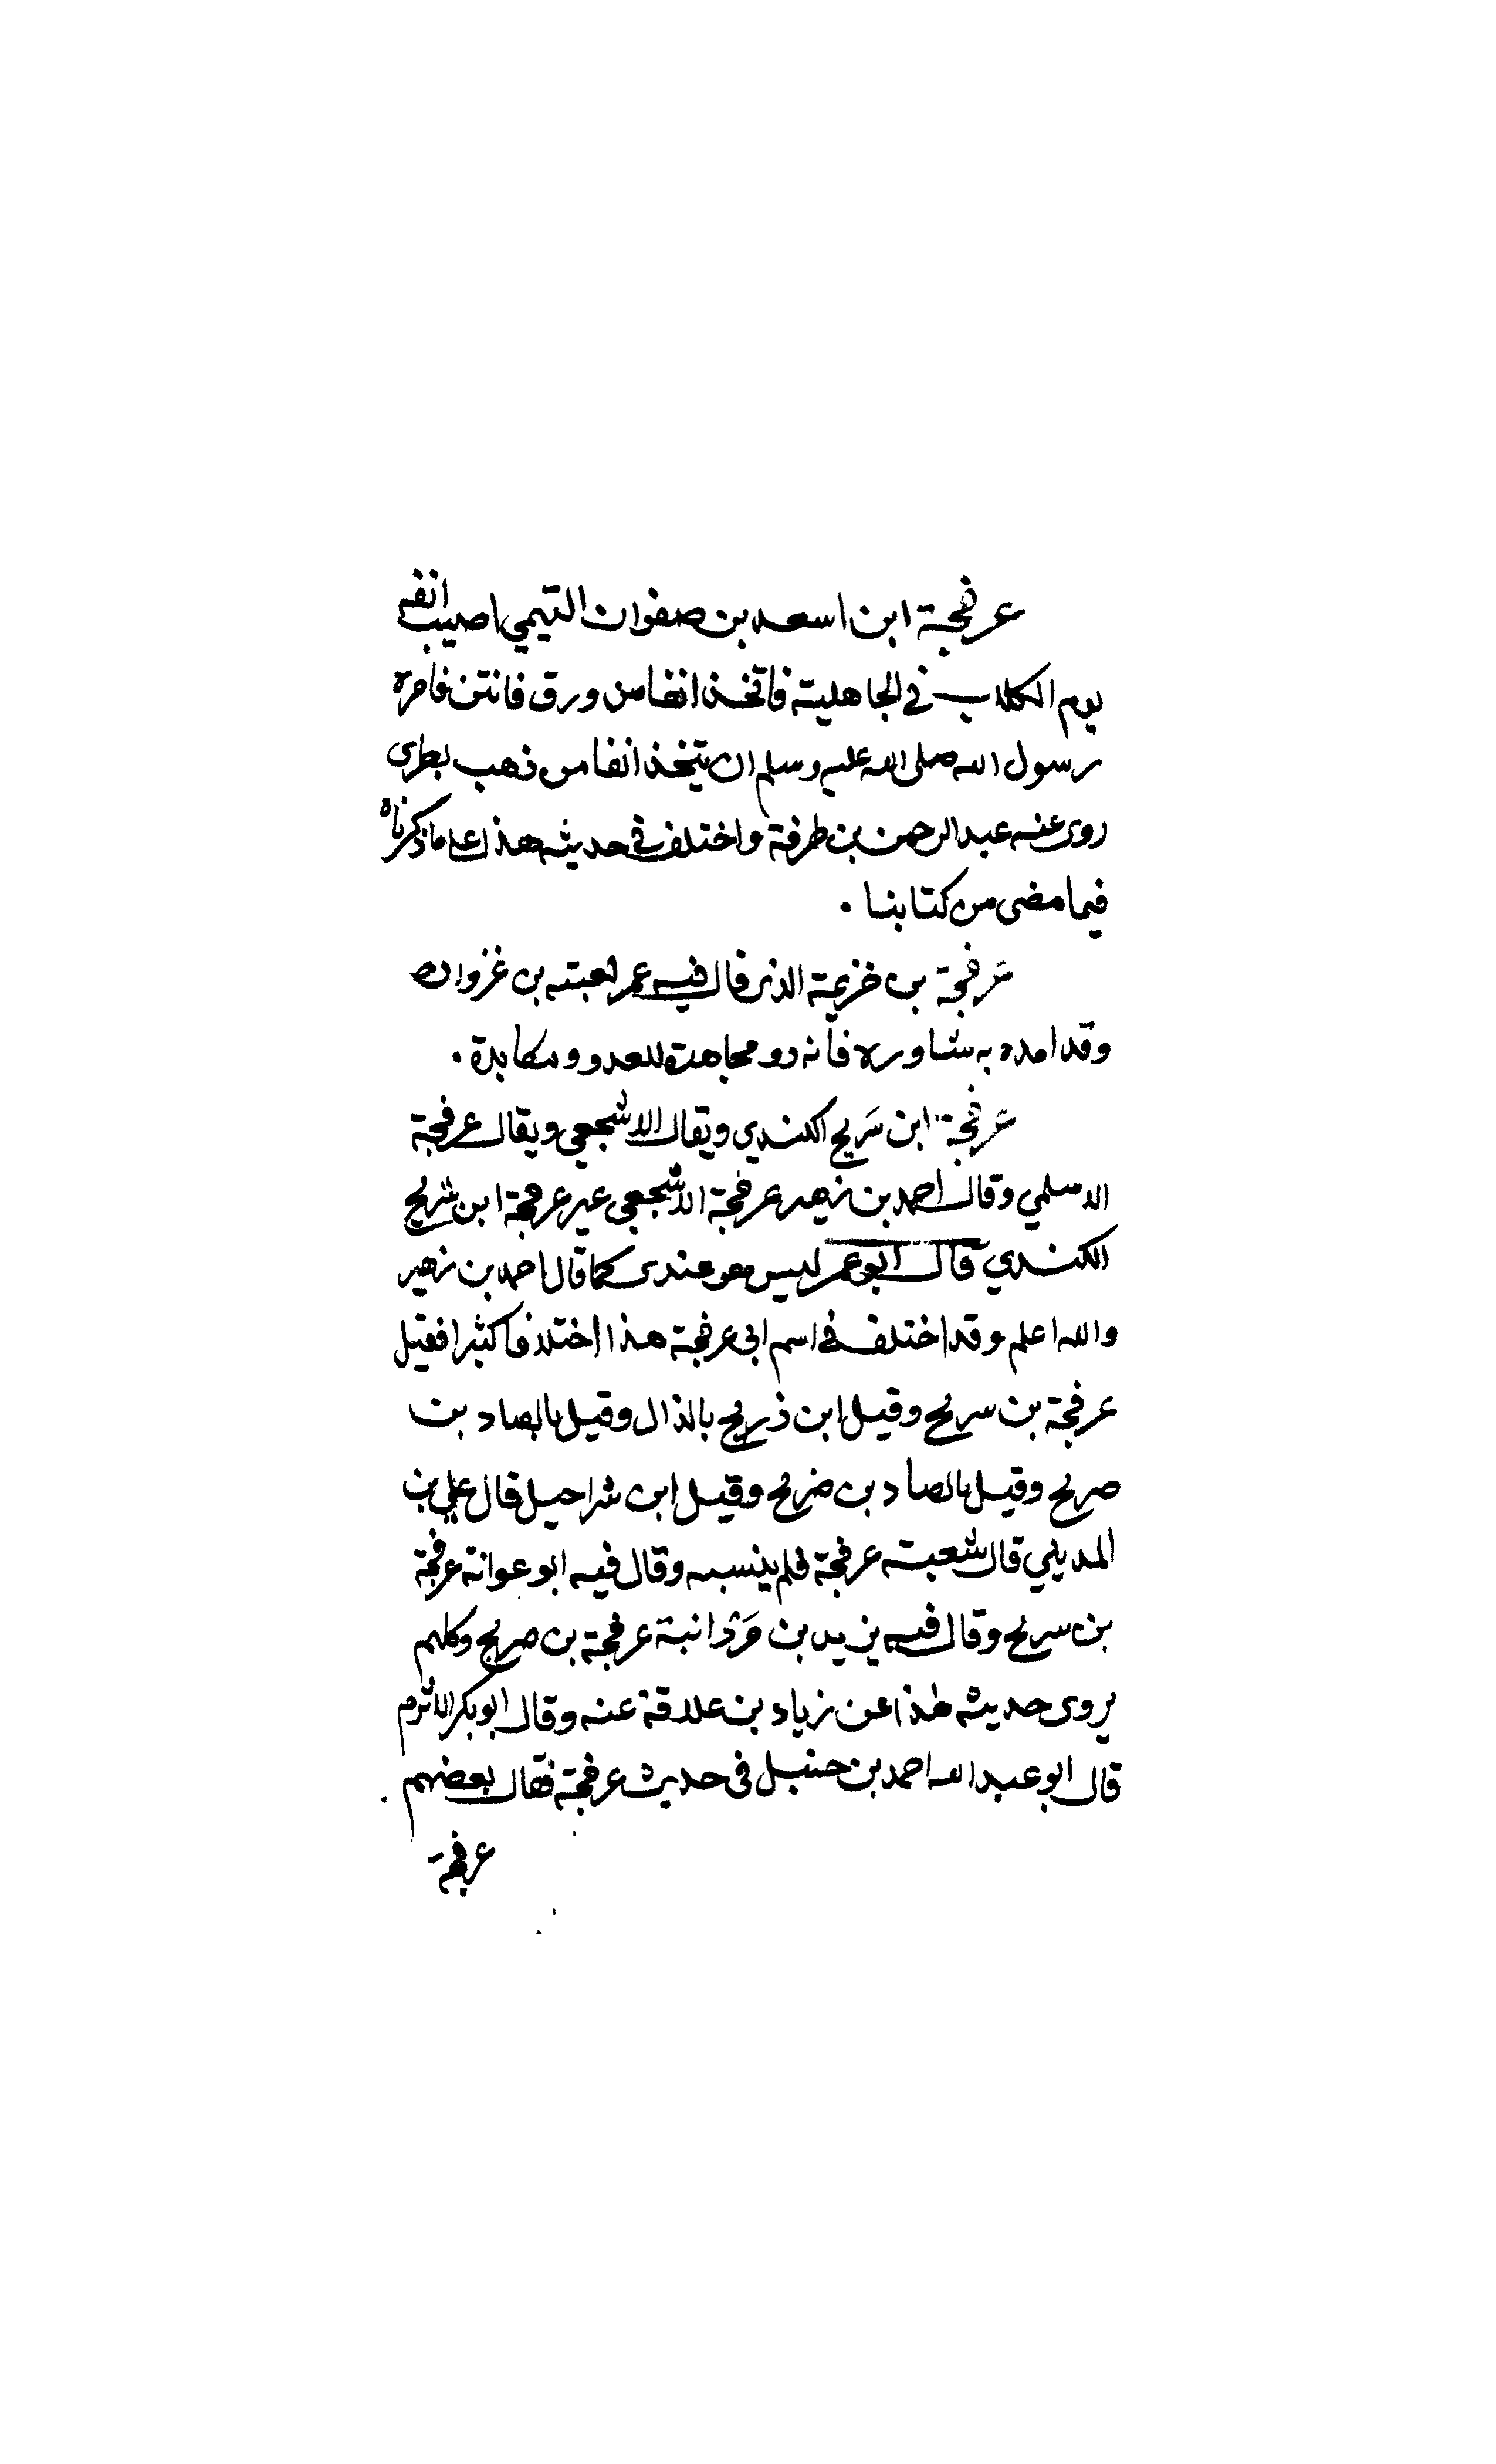 عرفجة ابن اسعد بن صفوان التيمي اصيب انفه
يوم الكلاب في الجاهلية فاتخذ انفا من ورق فانتن فامره
رسول الله صلى الله عليه وسلم ان يتخذ انفا من ذهب بصرى
روى عنه عبد الرحمن بن طرفة واختلف في حديثه هذا على ما ذكرناه
فيما مضى من كتابنا .
عرفجة بن خزيمة الذى قال فيه عمر لعبتة بن غزوان
وقد امده به شاوره فأنه ذو مجاهدة للعدو ومكابدة .
عرفجة ابن شريح الكندي ويقال الاشجعي ويقال عرفجة
الاسلمي وقال احمد بن زهير عرفجة الاشجعي غير عرفجة ابن شريح
الكندي قال ابو عمر ليس هو عندى كما قال احمد بن زهير
والله اعلم وقد اختلف في اسم ابى عرفجة هذا اختلافا كثيرا فقيل
عرفجة بن سريح وقيل ابن ذريح بالذال وقيل بالصاد بن
صريح وقيل بالصاد بن ضريح وقيل ابن شراحيل قال علي بن
المديني قال شعبة عرفجة فلم ينسبه وقال فيه ابو عوانة عرفجة
بن سريح وقال فيه يزيد بن مردانبة عرفجة بن صريح وكلهم
يروى حديثه هذا عن زياد بن علاقة عنه وقال ابو بكر الاثرم
قال ابو عبد الله احمد بن حنبل فى حديث عرفجة فقال بعضهم
عرفجة